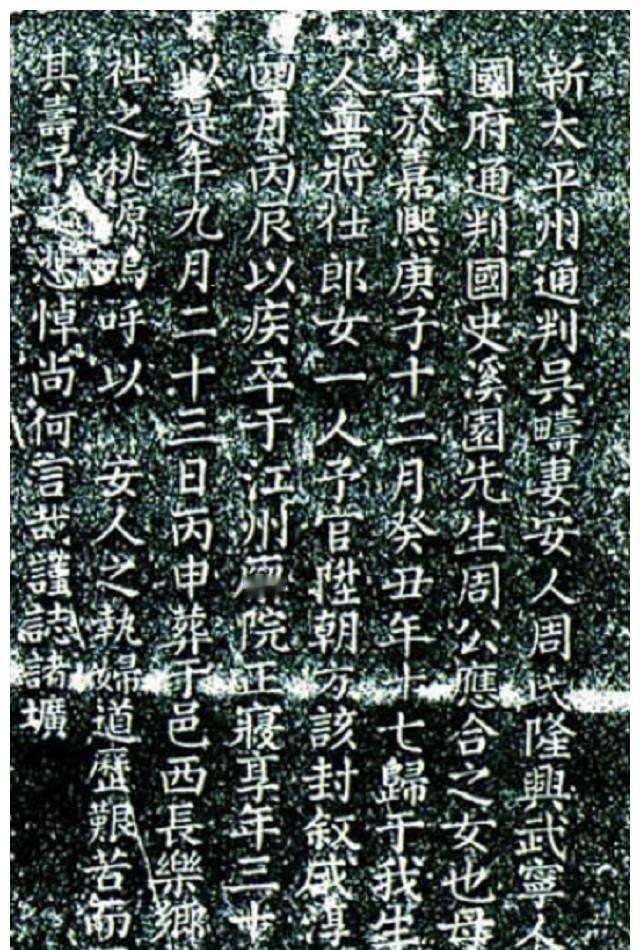 新太平州通判吳疇妻安人周氏隆興武寧人
國府通判國史溪園先生周公應合之女也母
生於嘉熙庚子十二月癸丑年十七歸于我生
人壐將仕郎女一人予官陞朝方該封敘咸淳
四月丙辰以疾卒于江州廨院正寢享年三十
以是年九月二十三日丙申葬于邑西長樂鄉
社之桃源嗚呼以 安人之執婦道歷艱苦而
其壽予之悲悼尚何言哉謹誌諸壙